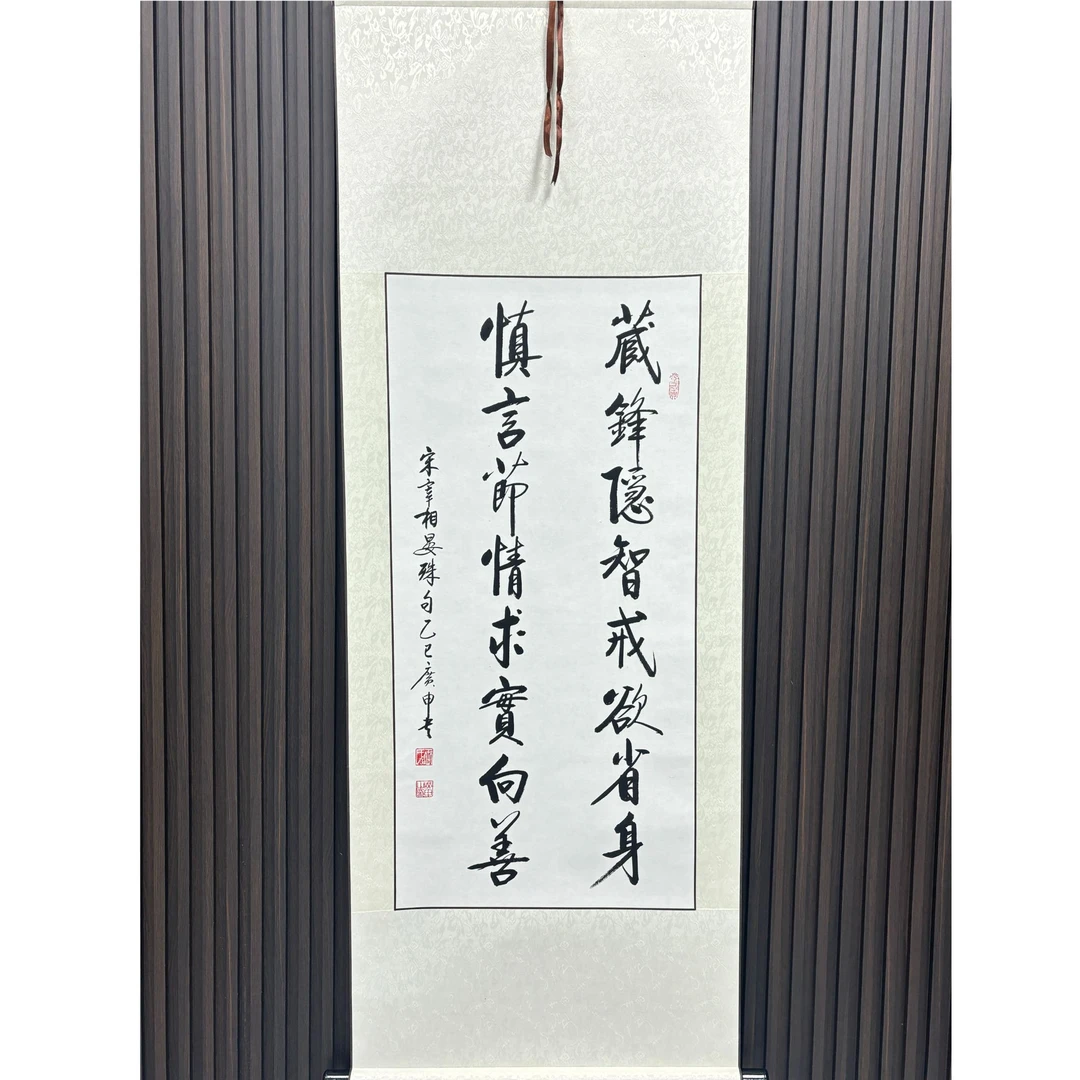 藏鋒隱智戒欲省身
慎言節情求實向善
宋宰相晏殊句乙巳廣申书